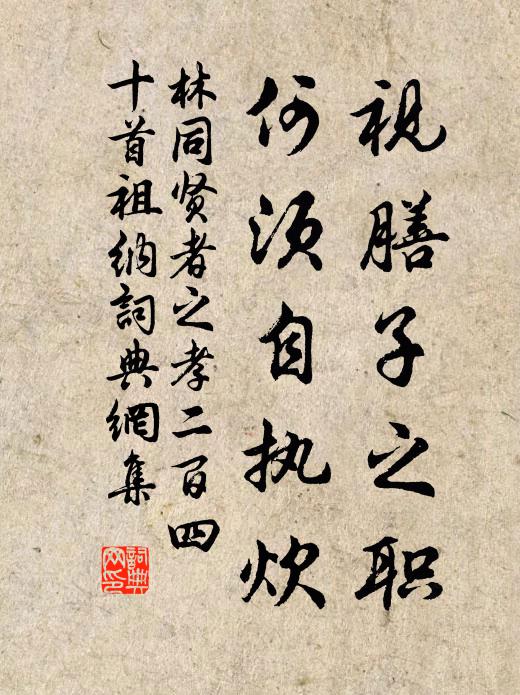 視膳子之职
何须自执炊
林同贤者之孝二百四
十首祖纳詞典網集
詞典网印